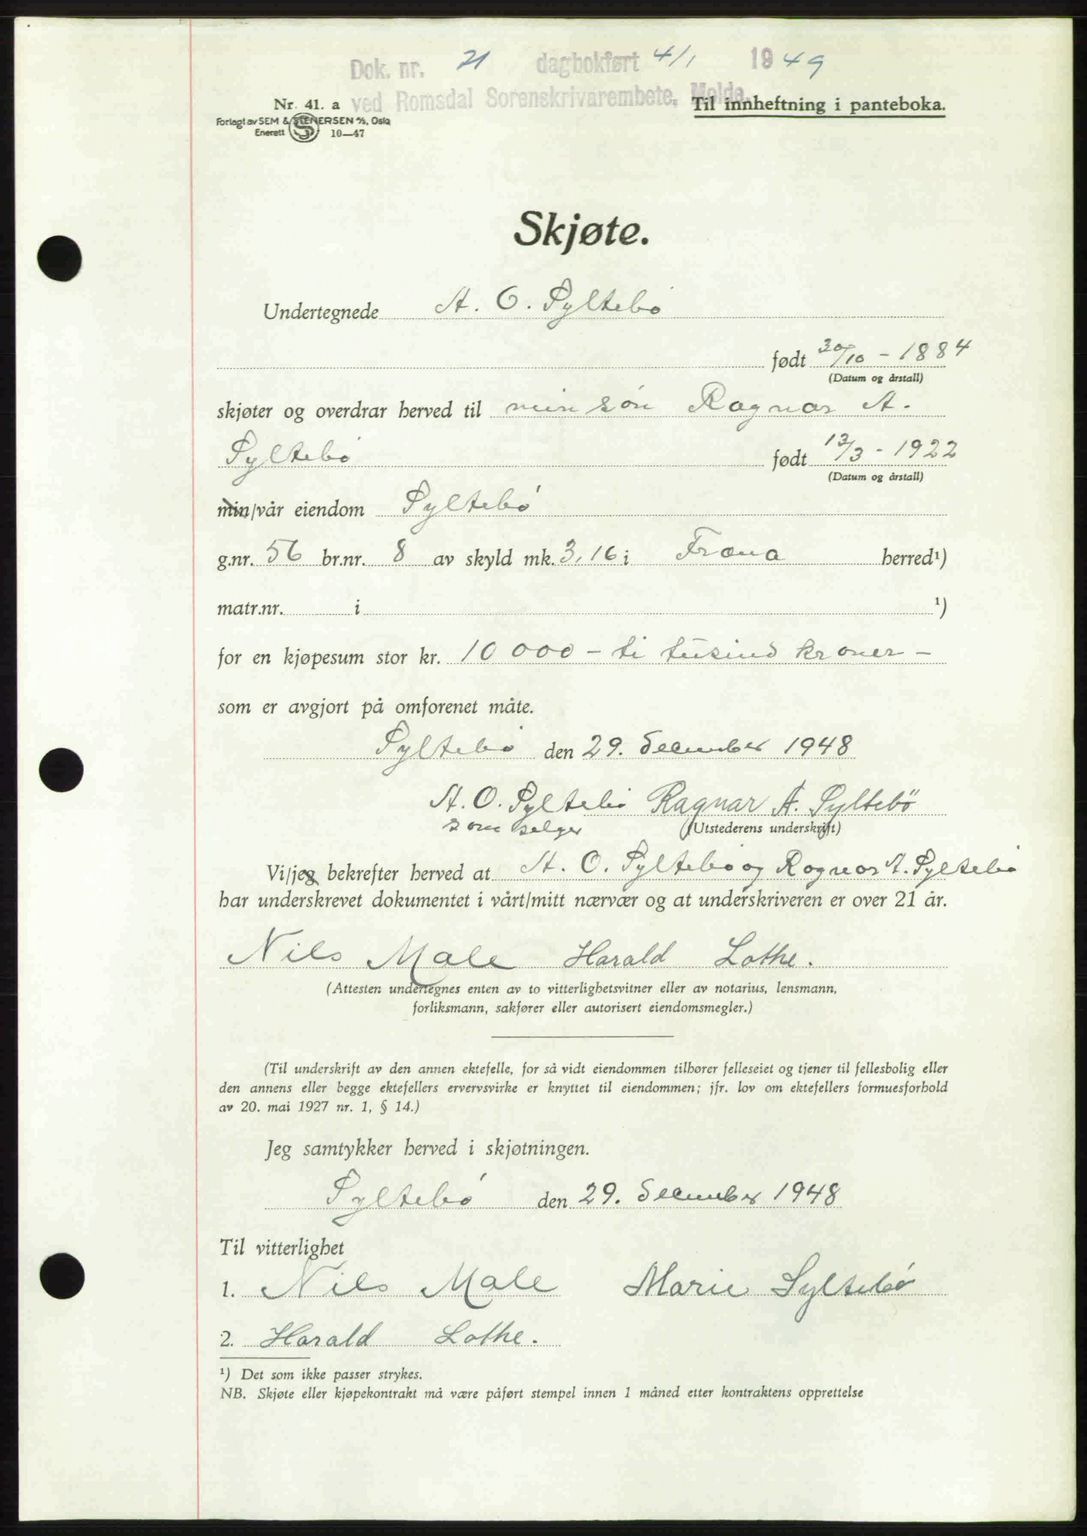 Dok. nr. 21 dagbokført 4/1 1949
ved Romsdal Sorenskrivarembete, Molde.
Nr. 41. a
Til innheftning i panteboka.
Forlagt av SEM & STENERSEN A/S, Oslo
Enerett S 10—47
Skjøte.
Undertegnede A. O. Syltebø
født 30/10 - 1884
(Datum og årstall)
skjøter og overdrar herved til min søn Ragnar A.
Syltebø født 13/3 - 1922
(Datum og årstall)
min/vår eiendom Syltebø
g.nr. 56 br.nr. 8 av skyld mk. 3,16 i Fræna herred¹)
matr.nr. i ¹)
for en kjøpesum stor kr. 10 000 - ti tusind kroner -
som er avgjort på omforenet måte.
Syltebø den 29. Desember 1948
A. O. Syltebø Ragnar A. Syltebø
som selger (Utstederens underskrift)
Vi/jeg bekrefter herved at A. O. Syltebø og Ragnar A. Syltebø
har underskrevet dokumentet i vårt/mitt nærvær og at underskriveren er over 21 år.
Nils Male Harald Lothe.
(Attesten undertegnes enten av to vitterlighetsvitner eller av notarius, lensmann,
forliksmann, sakfører eller autorisert eiendomsmegler.)
(Til underskrift av den annen ektefelle, for så vidt eiendommen tilhører felleseiet og tjener til fellesbolig eller
den annens eller begge ektefellers ervervsvirke er knyttet til eiendommen; jfr. lov om ektefellers formuesforhold
av 20. mai 1927 nr. 1, § 14.)
Jeg samtykker herved i skjøtningen.
Syltebø den 29. Desember 1948
Til vitterlighet
1. Nils Male Marie Syltebø
2. Harald Lothe.
¹) Det som ikke passer strykes.
NB. Skjøte eller kjøpekontrakt må være påført stempel innen 1 måned etter kontraktens opprettelse